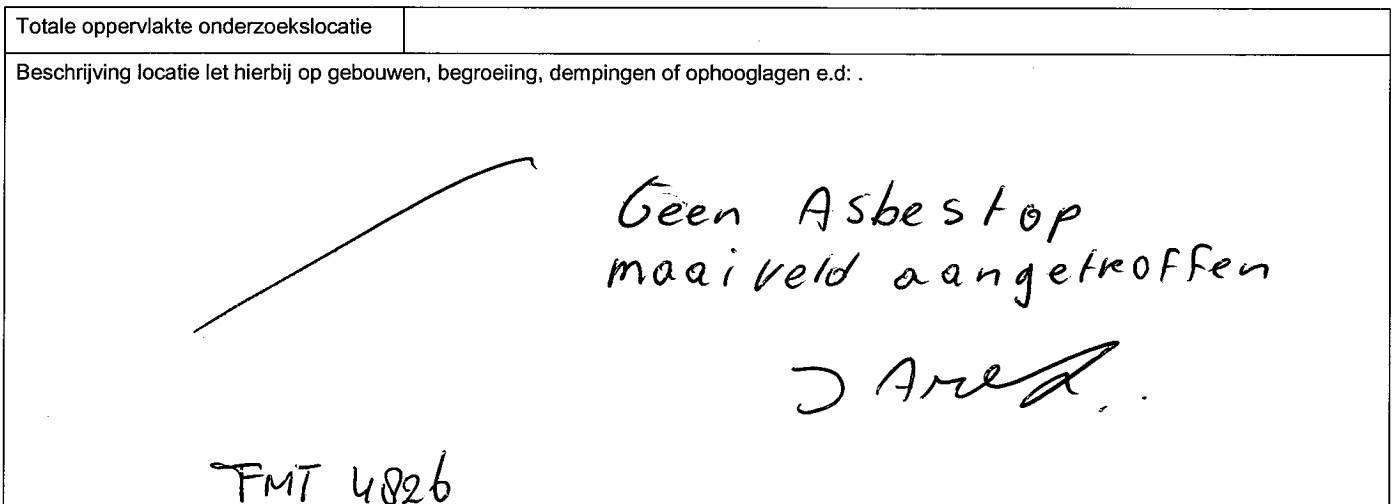 Totale oppervlakte onderzoekslocatie
Beschrijving locatie let hierbij op gebouwen, begroeiing, dempingen of ophooglagen e.d: .
Geen Asbest op
maaiveld aangetroffen
FMT 4826